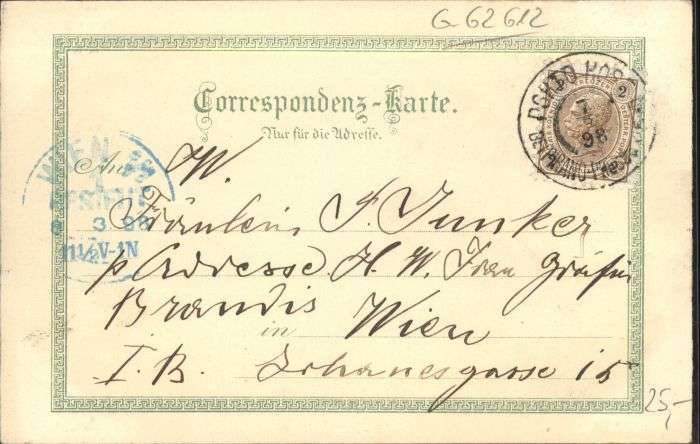 G 62612
Correspondenz-Karte.
Nur für die Adresse.
An W.
Fräulein J. Junker
p Adresse H. W. Frau Gräfin
Brandis
in Wien
I. B. Johanesgasse 15
WIEN
3. 98
11½V-1N
2
98
25,-